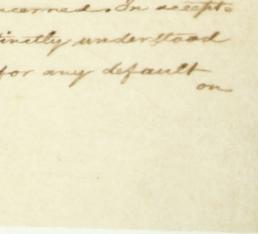 ncerned. In accept-
tinctly understood
for any default
on